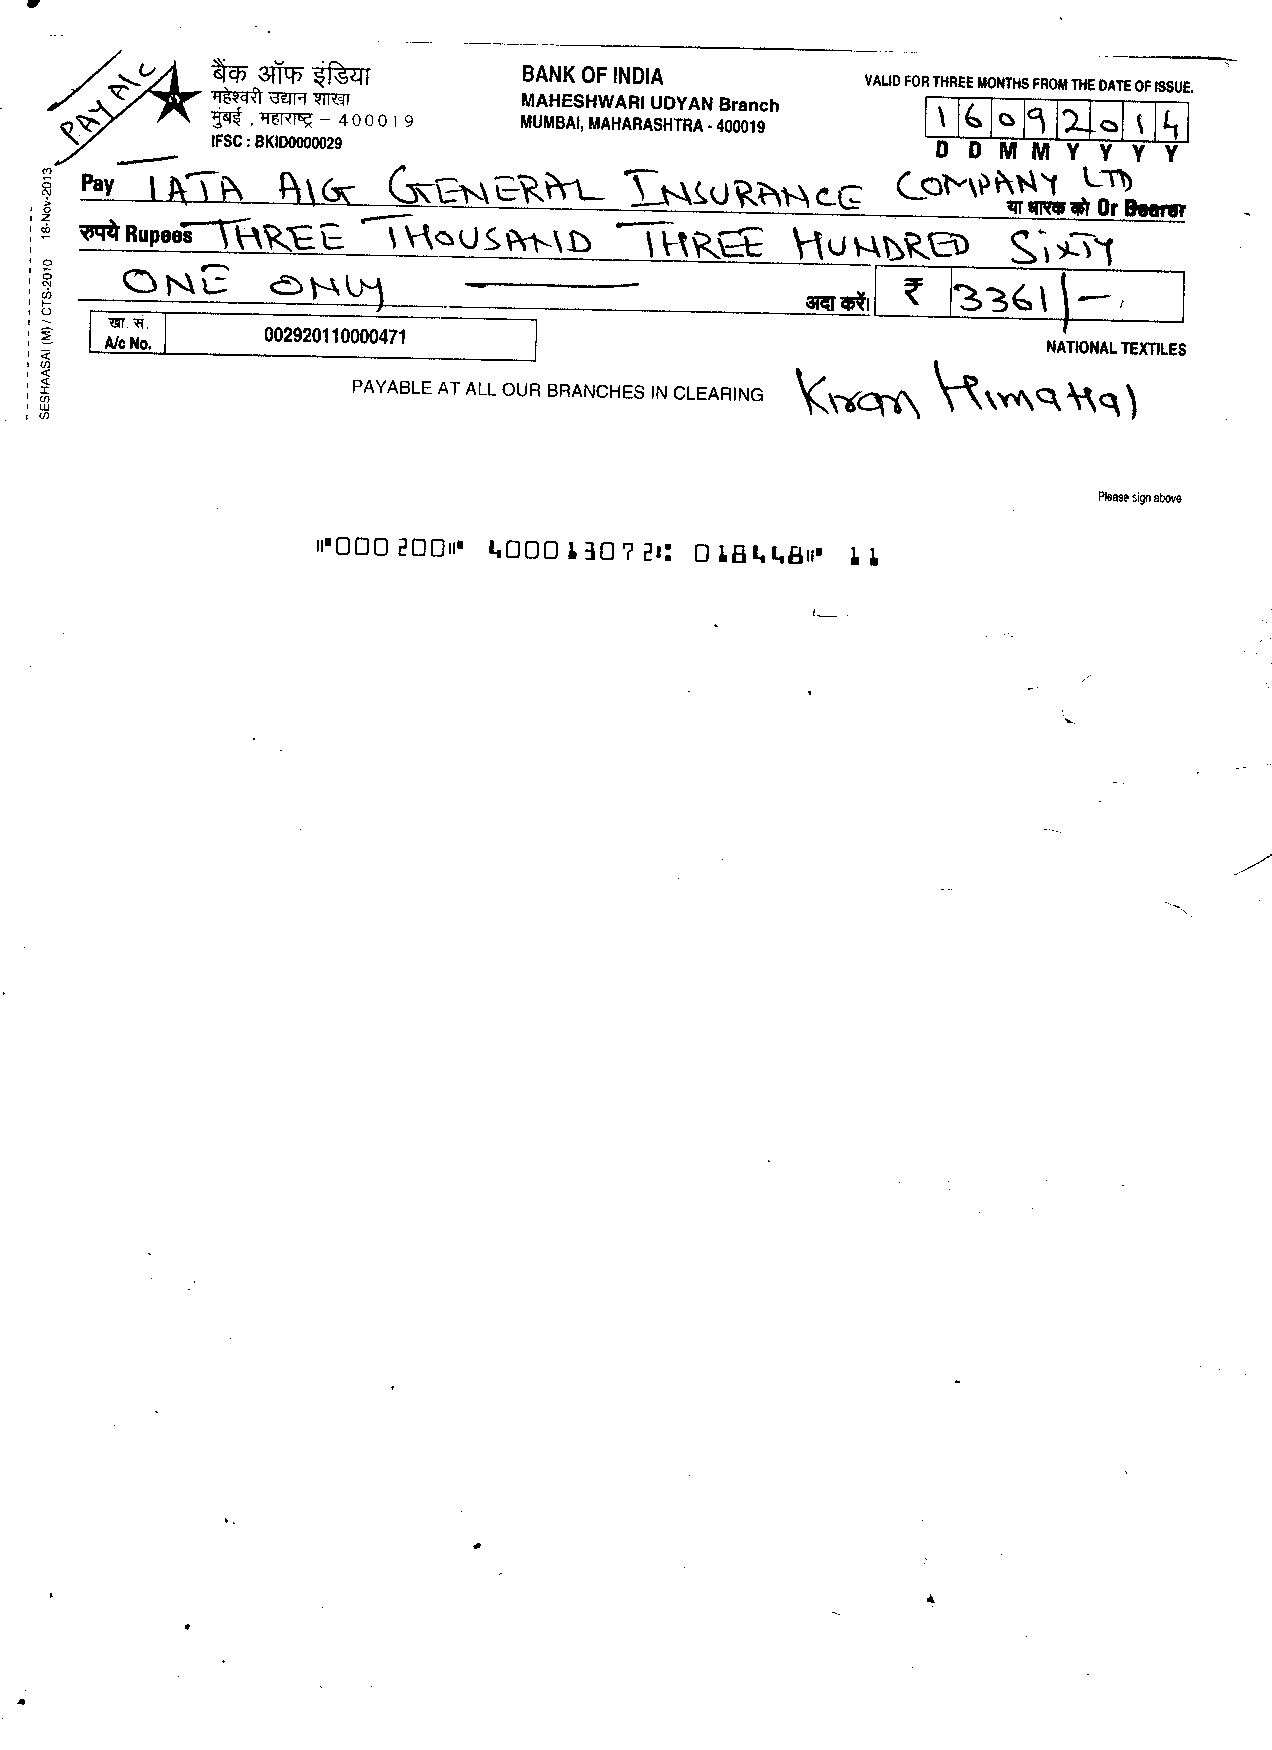 PAY A/C
बैंक ऑफ इंडिया
महेश्वरी उद्यान शाखा
मुंबई , महाराष्ट्र – 400019
IFSC : BKID0000029
BANK OF INDIA
MAHESHWARI UDYAN Branch
MUMBAI, MAHARASHTRA - 400019
VALID FOR THREE MONTHS FROM THE DATE OF ISSUE.
1 6 0 9 2 0 1 4
D D M M Y Y Y Y
Pay TATA AIG GENERAL INSURANCE COMPANY LTD
या धारक को Or Bearer
रुपये Rupees THREE THOUSAND THREE HUNDRED SIXTY
ONE ONLY
अदा करें। ₹ 3361/-
खा. सं.
A/c No. 002920110000471
NATIONAL TEXTILES
PAYABLE AT ALL OUR BRANCHES IN CLEARING
Kiran Himatlal
Please sign above
⑈000200⑈ 400013072⑆ 018448⑈ 11
SESHAASAI (M) / CTS-2010 18-Nov-2013